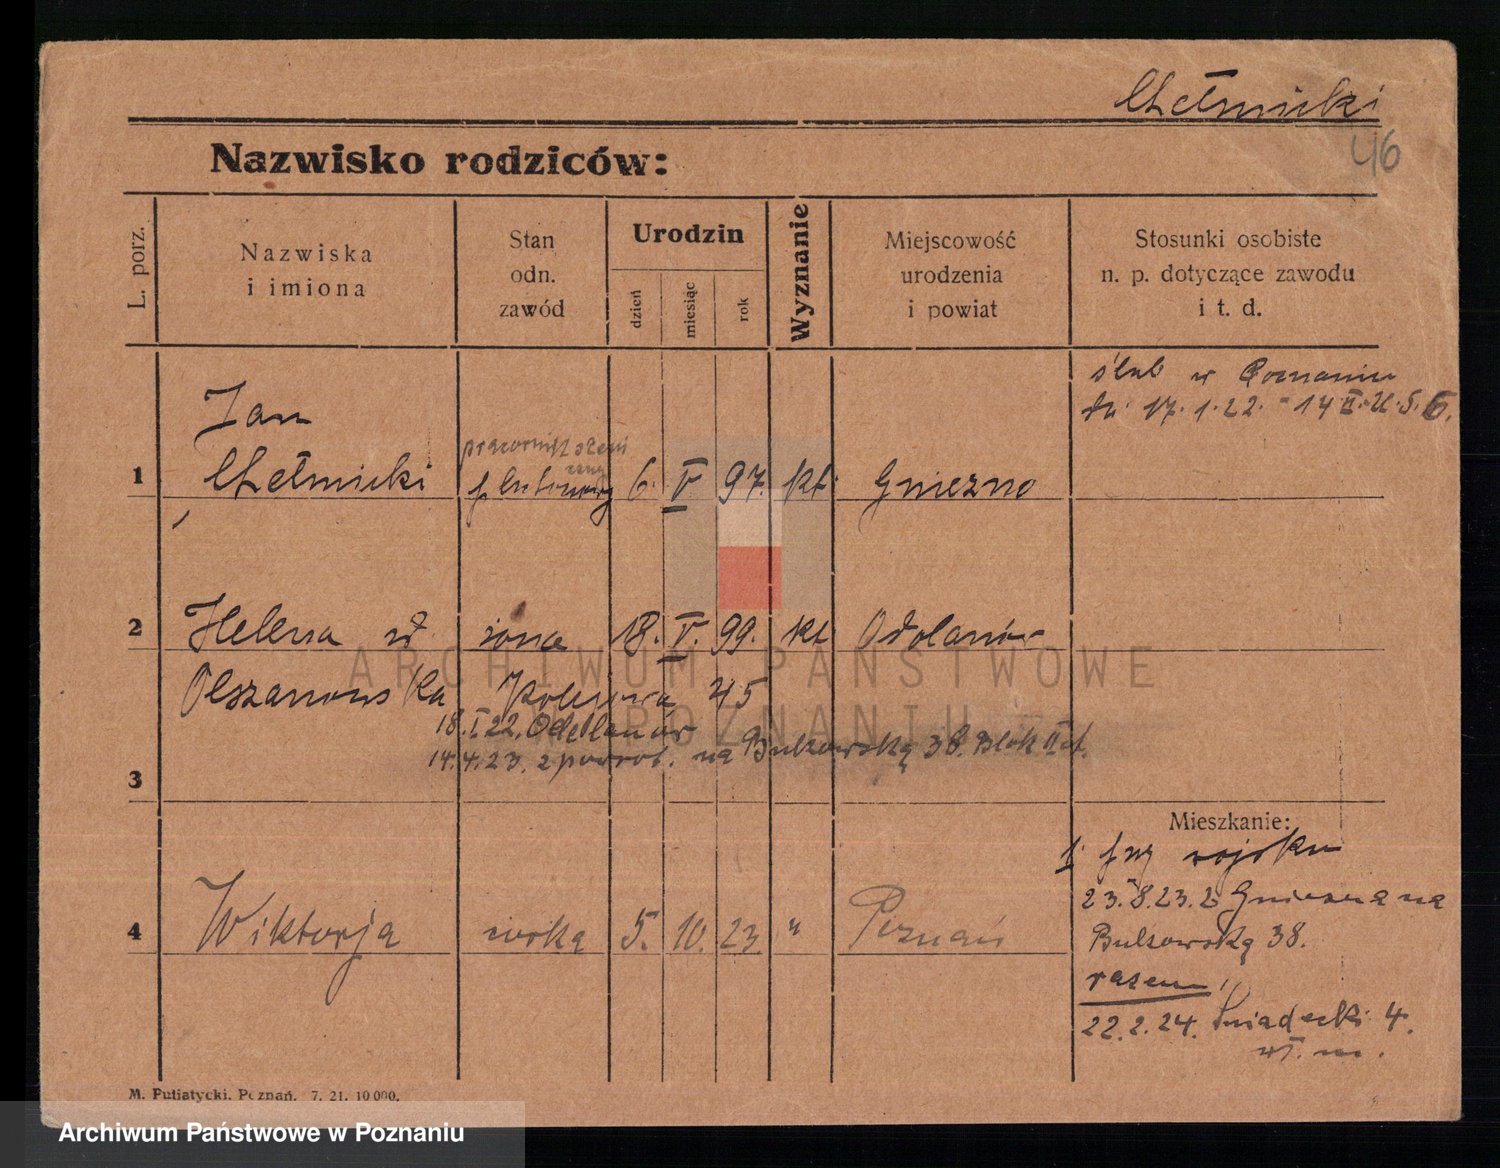 Chełmicki
46
Nazwisko rodziców:
L. porz.
Nazwiska
i imiona
Stan
odn.
zawód
Urodzin
dzień
miesiąc
rok
Wyznanie
Miejscowość
urodzenia
i powiat
Stosunki osobiste
n. p. dotyczące zawodu
i t. d.
ślub w Poznaniu
dn. 17. 1. 22.
1
Jan
Chełmicki
6. V 97. kt. Gniezno
2
Helena
żona 18. V. 99. kt Odolanów
Olszanowska
45
18. I. 22. Odolanów
14. 4. 23. z powrot. na Bukowską 38. Blok II
3
Mieszkanie:
wojsku
23. 8. 23. z Gniezna na
Bukowską 38.
razem
22. 2. 24. Śniadecki 4.
4
Wiktorja córka 5. 10. 23 " Poznań
M. Putiatycki. Poznań. 7. 21. 10 000.
ARCHIWUM PAŃSTWOWE
W POZNANIU
Archiwum Państwowe w Poznaniu